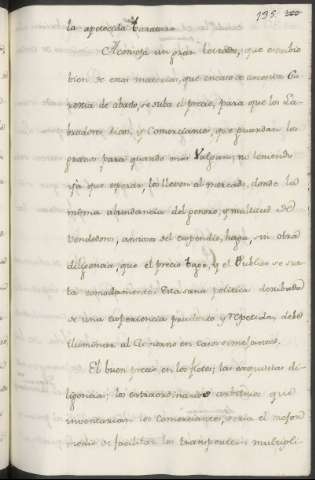 195 200
la apetecida baratura
Aconseja un gran Letrado, que escribio
bien de estas materias, que en caso de
de abasto, se suba el precio, para que los La-
bradores ricos, y Comerciantes, que guardan los
granos para quando mas Valgan, no teniendo
ya que esperar, los lleven al mercado, donde la
misma abundancia del genero, y multitud de
Vendedores, ansiosos del expendio, haga, sin otra
diligencia, que el precio baxe, y el Publico se sur-
ta comodamente. Esta sana politica derivada
de una experiencia prudente y repetida, debe
iluminar al Govierno en casos semejantes.
El buen precio en los fletes; las exquisitas di-
ligencias; los extraordinarios arbitrios que
inventarian los Comerciantes, seria el mejor
medio de facilitar los transportes, multipli-